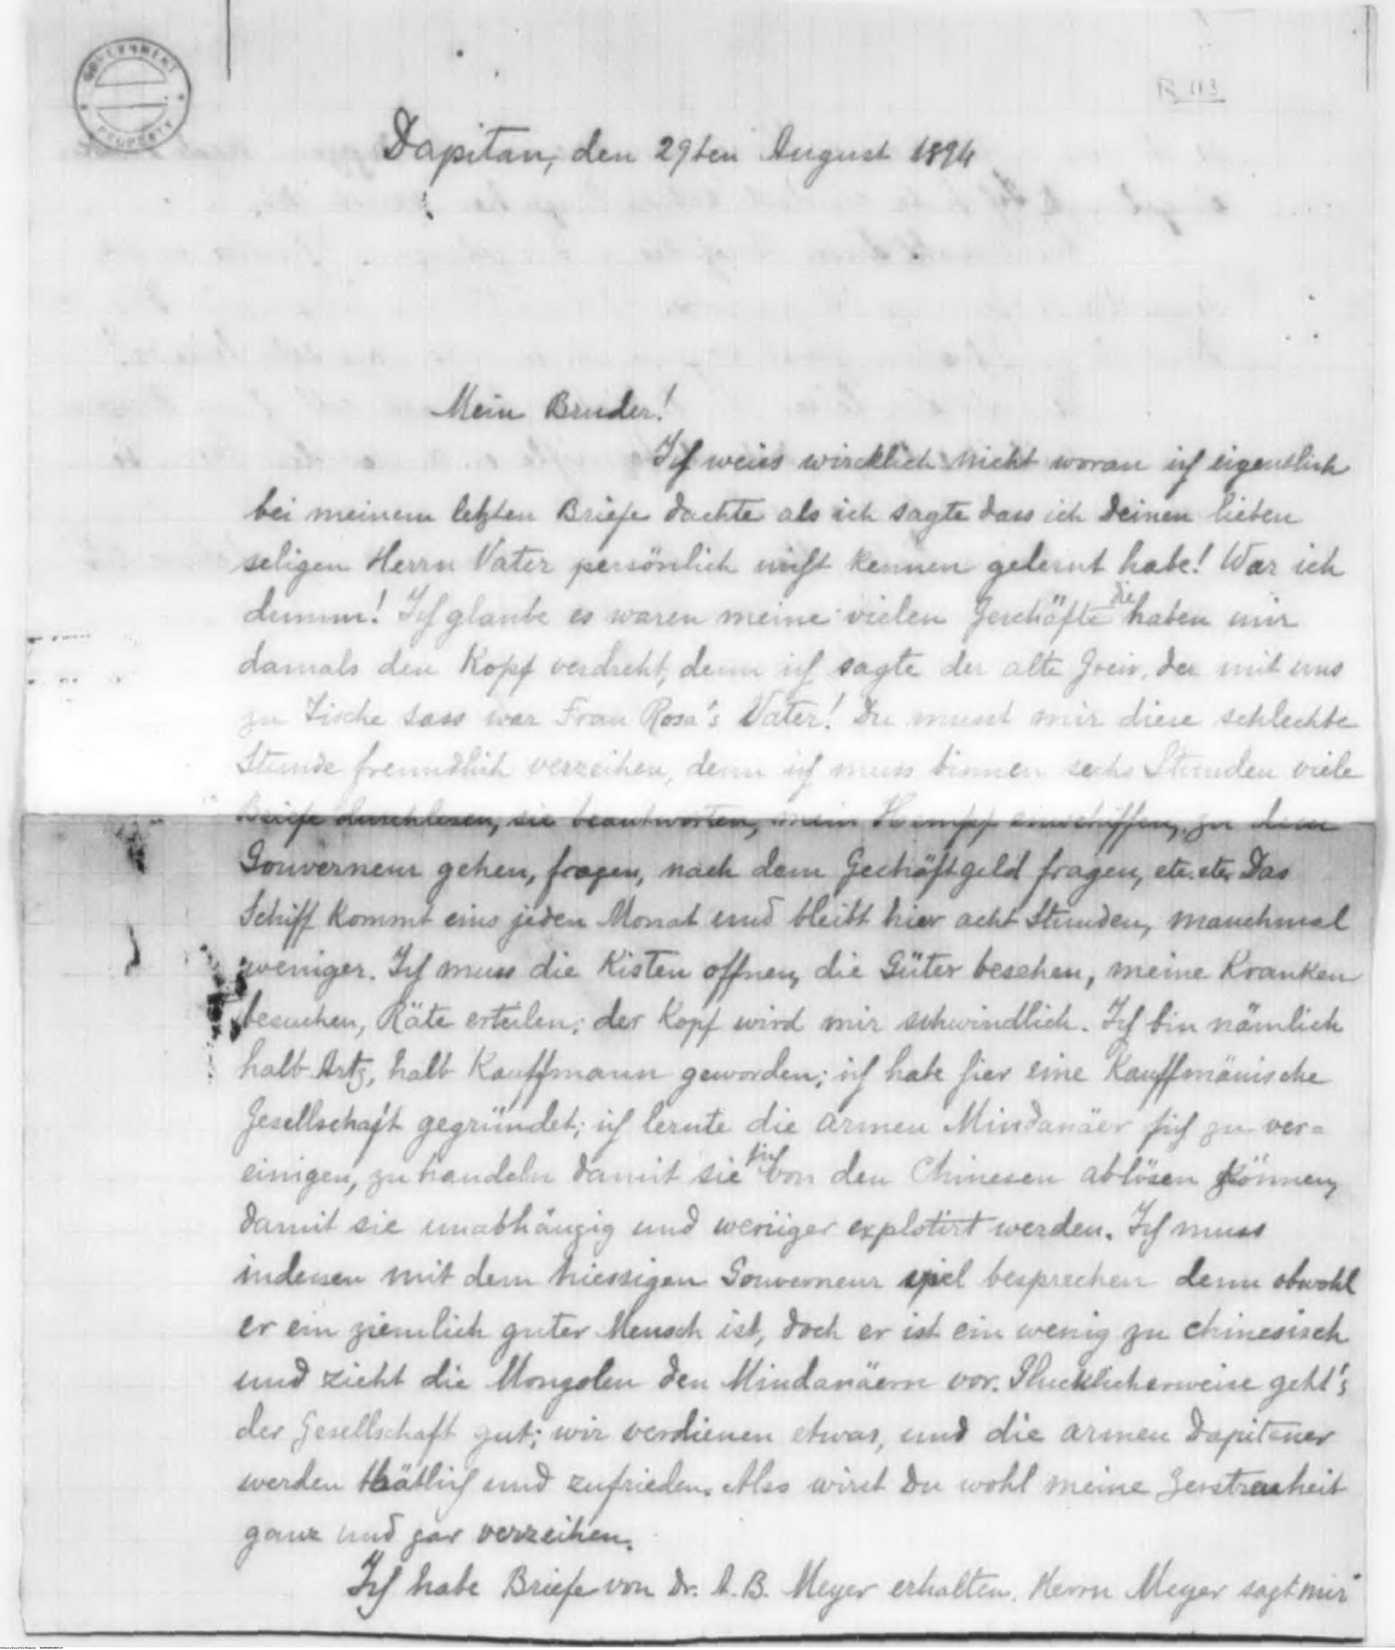 GOVERNMENT PROPERTY
R 113
Dapitan, den 29ten August 1894
Mein Bruder!
Ich weiss wircklich nicht woran ich eigentlich
bei meinem letzten Briefe dachte als ich sagte dass ich Deinen lieben
seligen Herrn Vater persönlich nicht kennen gelernt habe! War ich
dumm! Ich glaube es waren meine vielen Geschäfte die haben mir
damals den Kopf verdreht, denn ich sagte der alte Greis, der mit uns
zu Tische sass war Frau Rosa's Vater! Du musst mir diese schlechte
Stunde freundlich verzeihen, denn ich muss binnen sechs Stunden viele
Briefe durchlesen, sie beantworten, mein Hempf einschiffen, zu dem
Gouverneur gehen, fragen, nach dem Geschäftgeld fragen, etc. etc. Das
Schiff kommt eins jeden Monat und bleibt hier acht Stunden, manchmal
weniger. Ich muss die Kisten offnen, die Güter besehen, meine Kranken
besuchen, Räte erteilen; der Kopf wird mir schwindlich. Ich bin nämlich
halb Artz, halb Kauffmann geworden; ich habe hier eine Kauffmänische
Gesellschaft gegründet; ich lernte die armen Mindanäer sich zu ver=
einigen, zu handeln damit sie sich von den Chinesen ablösen können,
damit sie unabhängig und weniger explotirt werden. Ich muss
indessen mit dem hiessigen Gouverneur viel besprechen denn obwohl
er ein ziemlich guter Mensch ist, doch er ist ein wenig zu chinesisch
und zieht die Mongolen den Mindanäern vor. Glucklicherweise geht's
der Gesellschaft gut; wir verdienen etwas, und die armen Dapitaner
werden thätlich und zufrieden. Also wirst Du wohl meine Zerstreuheit
ganz und gar verzeihen.
Ich habe Briefe von Dr. A. B. Meyer erhalten. Herrn Meyer sagt mir